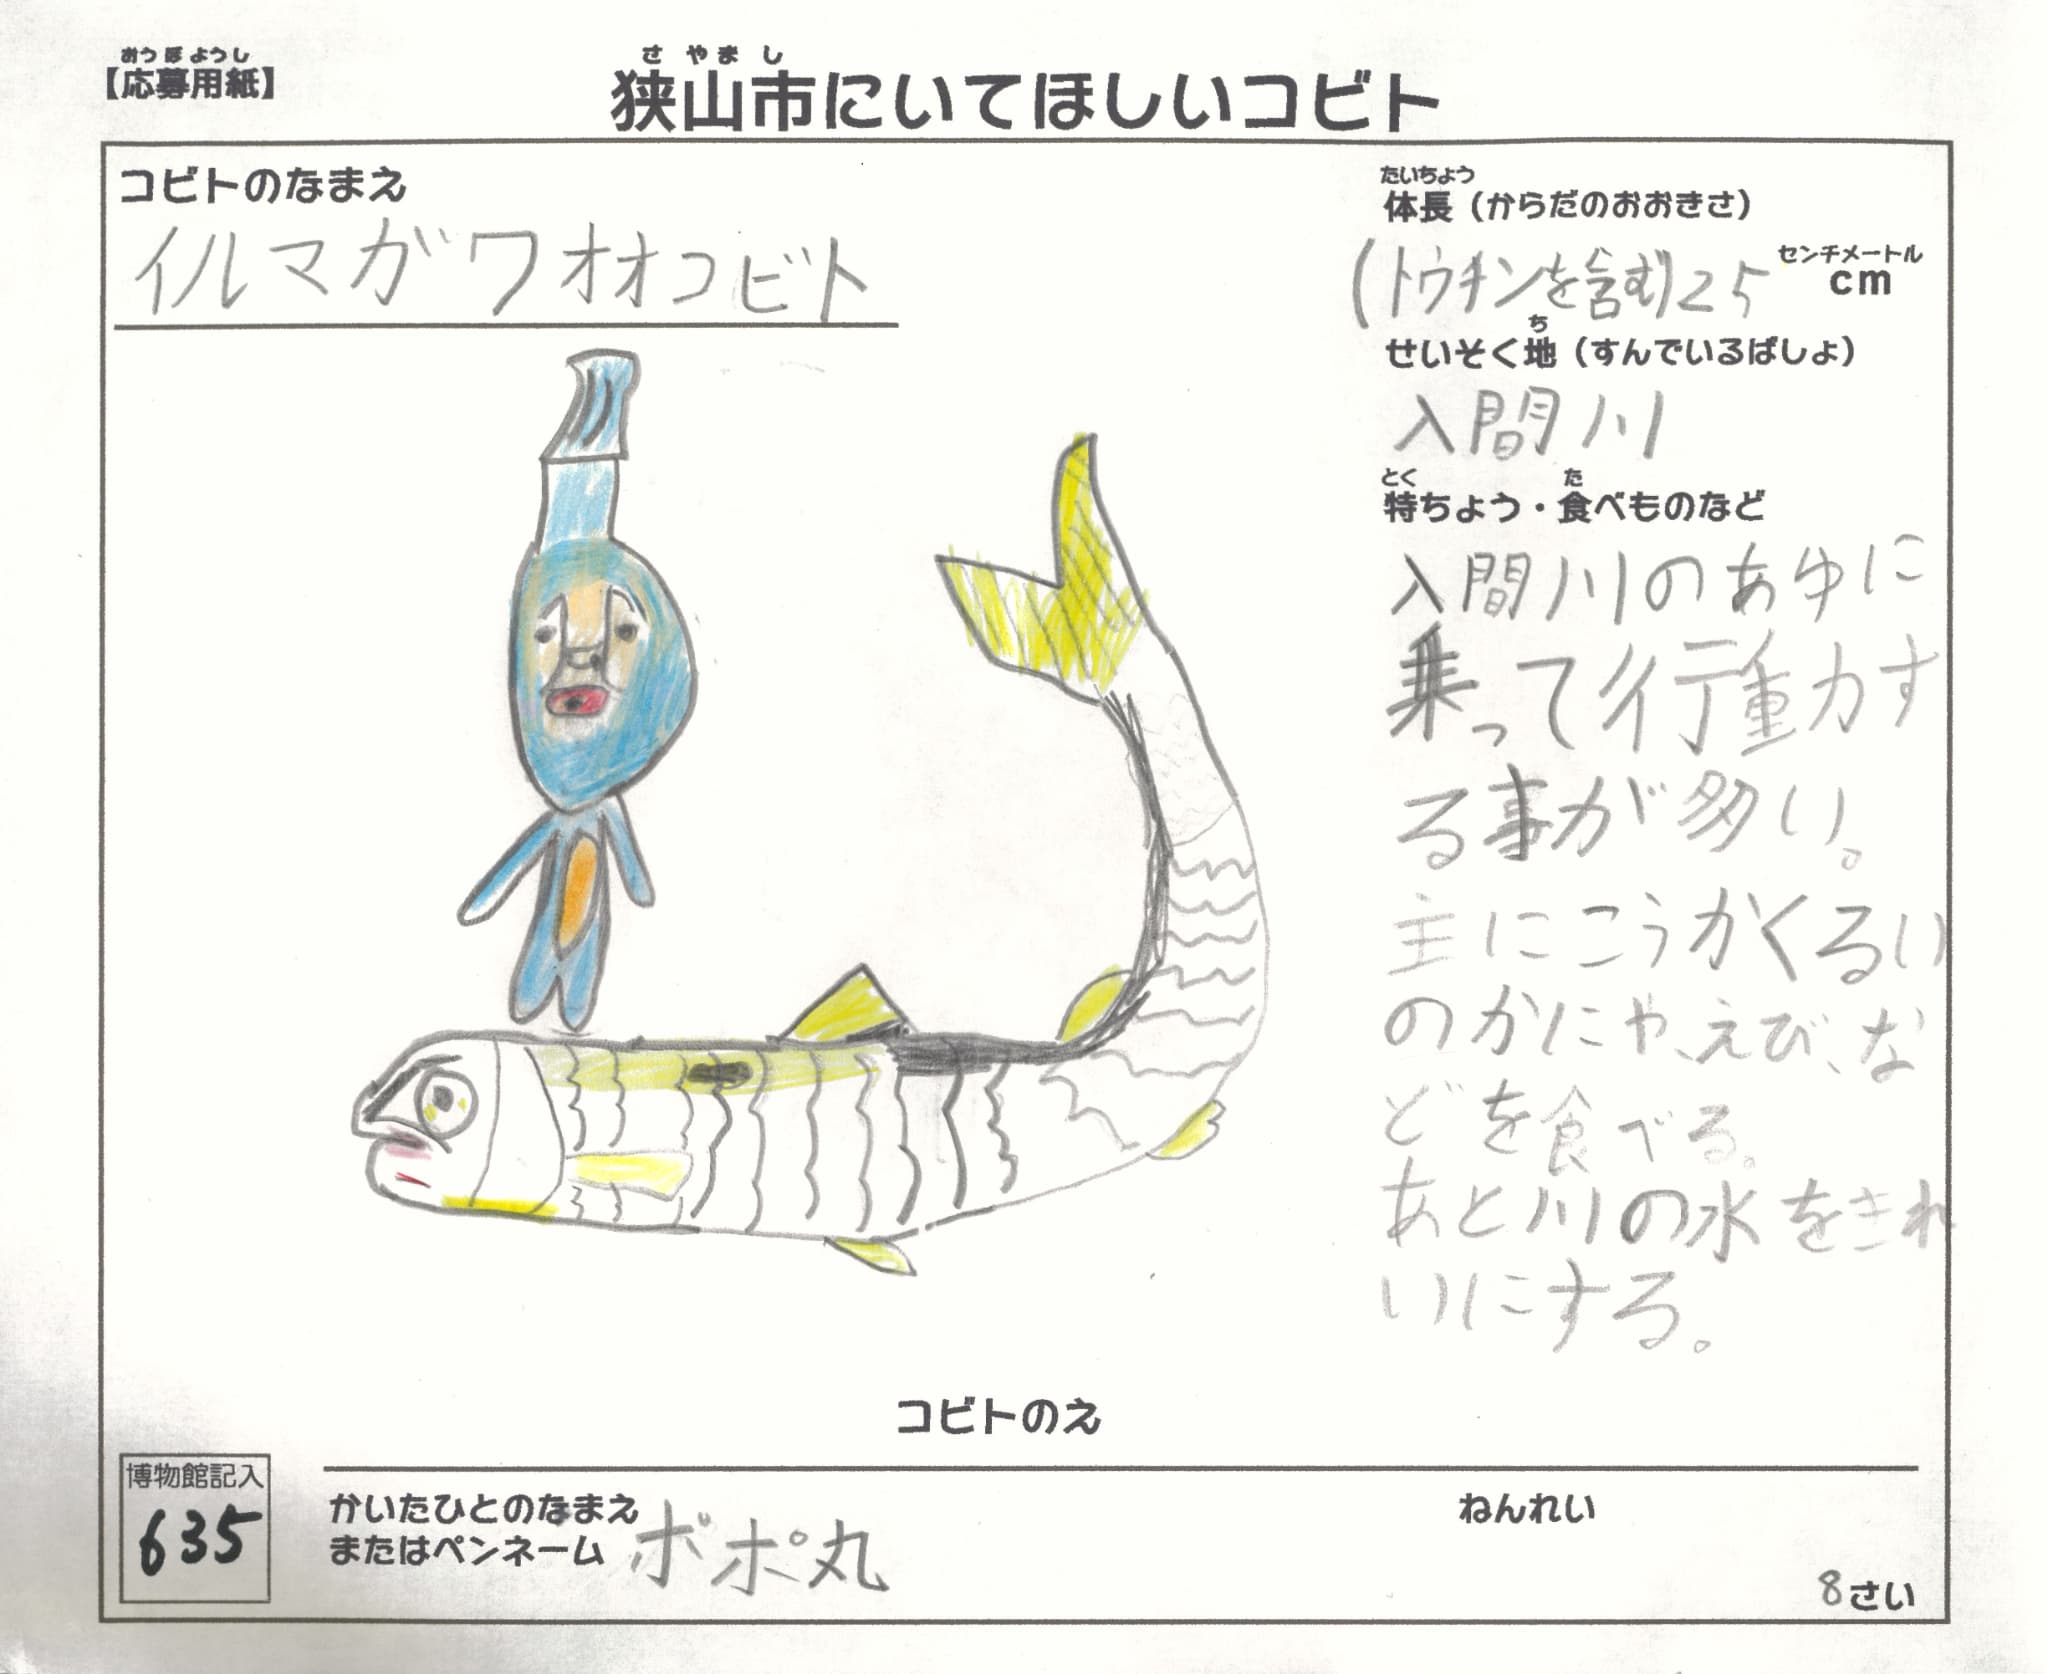 おうぼようし
【応募用紙】
さやまし
狭山市にいてほしいコビト
コビトのなまえ
イルマガワオオコビト
たいちょう
体長（からだのおおきさ）
(トウチンを含む)25
センチメートル
cm
ち
せいそく地（すんでいるばしょ）
入間川
とく た
特ちょう・食べものなど
入間川のあゆに
乗って行動す
る事が多い。
主にこうかくるい
のかにや、えび、な
どを食べる。
あと川の水をきれ
いにする。
コビトのえ
博物館記入
635
かいたひとのなまえ
またはペンネーム
ボポ丸
ねんれい
8さい